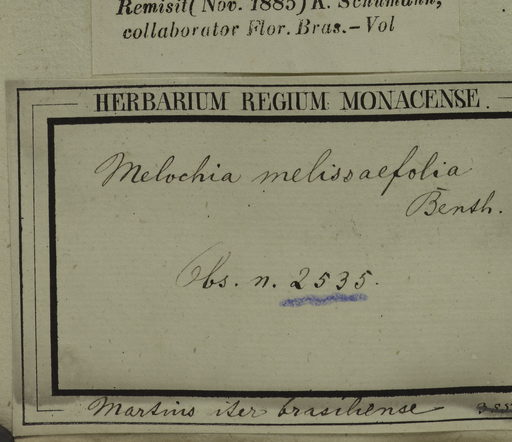 Remisit (Nov. 1885) K. Schumann,
collaborator Flor. Bras. - Vol
HERBARIUM REGIUM MONACENSE.
Melochia melissaefolia
Benth.
Obs. n. 2535.
Martius iter brasiliense